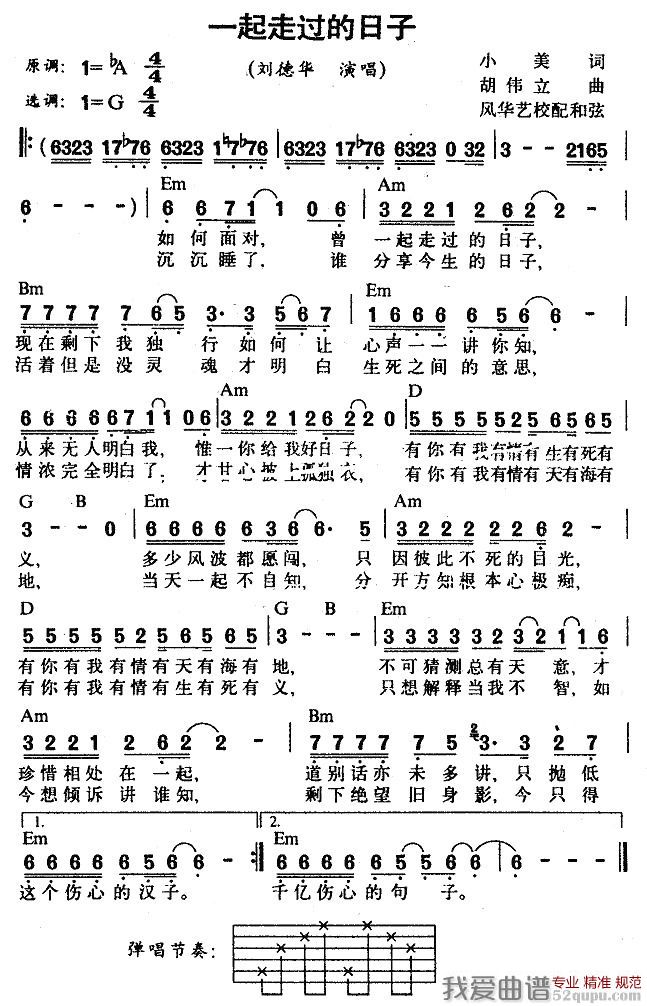 一起走过的日子
原调: 1=♭A 4/4
(刘德华 演唱)
小美 词
胡伟立 曲
选调: 1=G 4/4
风华艺校配和弦
(6323 17♭76 6323 1♮7♭76 6323 17♭76 6323 0 32 3 - - 2165
Em Am
6 - - -) 6 6 7 1 1 0 6 3 2 2 1 2 6 2 2 -
如何面对, 曾一起走过的日子,
沉沉睡了, 谁分享今生的日子,
Bm Em
7 7 7 7 7 6 5 3· 3 5 6 7 1 6 6 6 6 5 6 6 -
现在剩下我独行如何让心声一一讲你知,
活着但是没灵魂才明白生死之间的意思,
Am D
6 6 6 6 6 7 1 1 0 6 3 2 2 1 2 6 2 2 0 5 5 5 5 5 2 5 6 5 6 5
从来无人明白我, 惟一你给我好日子, 有你有我有情有生有死有
情浓完全明白了, 才甘心披上孤独衣, 有你有我有情有天有海有
G B Em Am
3 - - 0 6 6 6 6 6 6 3 6 6· 5 3 2 2 2 2 2 6 2 -
义, 多少风波都愿闯, 只因彼此不死的目光,
地, 当天一起不自知, 分开方知根本心极痴,
D G B Em
5 5 5 5 5 2 5 6 5 6 5 3 - - - 3 3 3 3 3 2 3 2 1 1 6
有你有我有情有天有海有地, 不可猜测总有天意, 才
有你有我有情有生有死有义, 只想解释当我不智, 如
Am Bm
3 2 2 1 2 6 2 2 - 7 7 7 7 7 5 2 3· 3 2 7
珍惜相处在一起, 道别话亦未多讲, 只抛低
今想倾诉讲谁知, 剩下绝望旧身影, 今只得
1. 2.
Em Em
6 6 6 6 6 5 6 6 - 6 6 6 6 6 5 5 6 6 - 6 - - -
这个伤心的汉子。 千亿伤心的句子。
弹唱节奏:
我爱曲谱 专业 精准 规范
52qupu.com